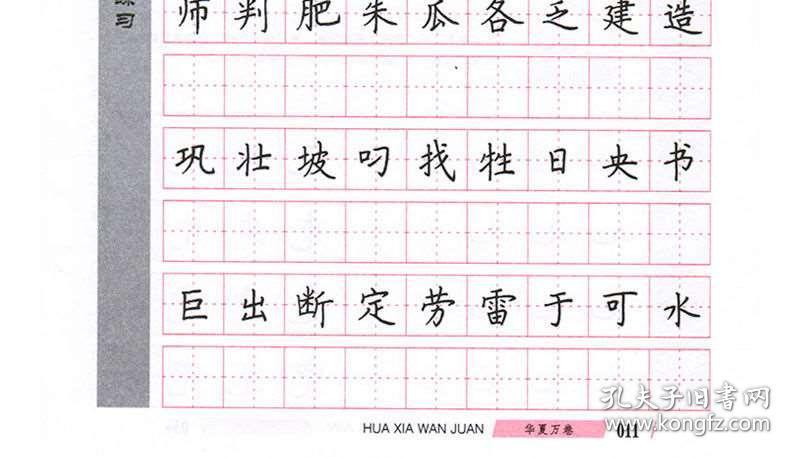 练习
师判肥朱瓜各乏建造
巩壮坡叼找牲日央书
巨出断定劳雷于可水
HUA XIA WAN JUAN 华夏万卷 011
孔夫子旧书网
www.kongfz.com